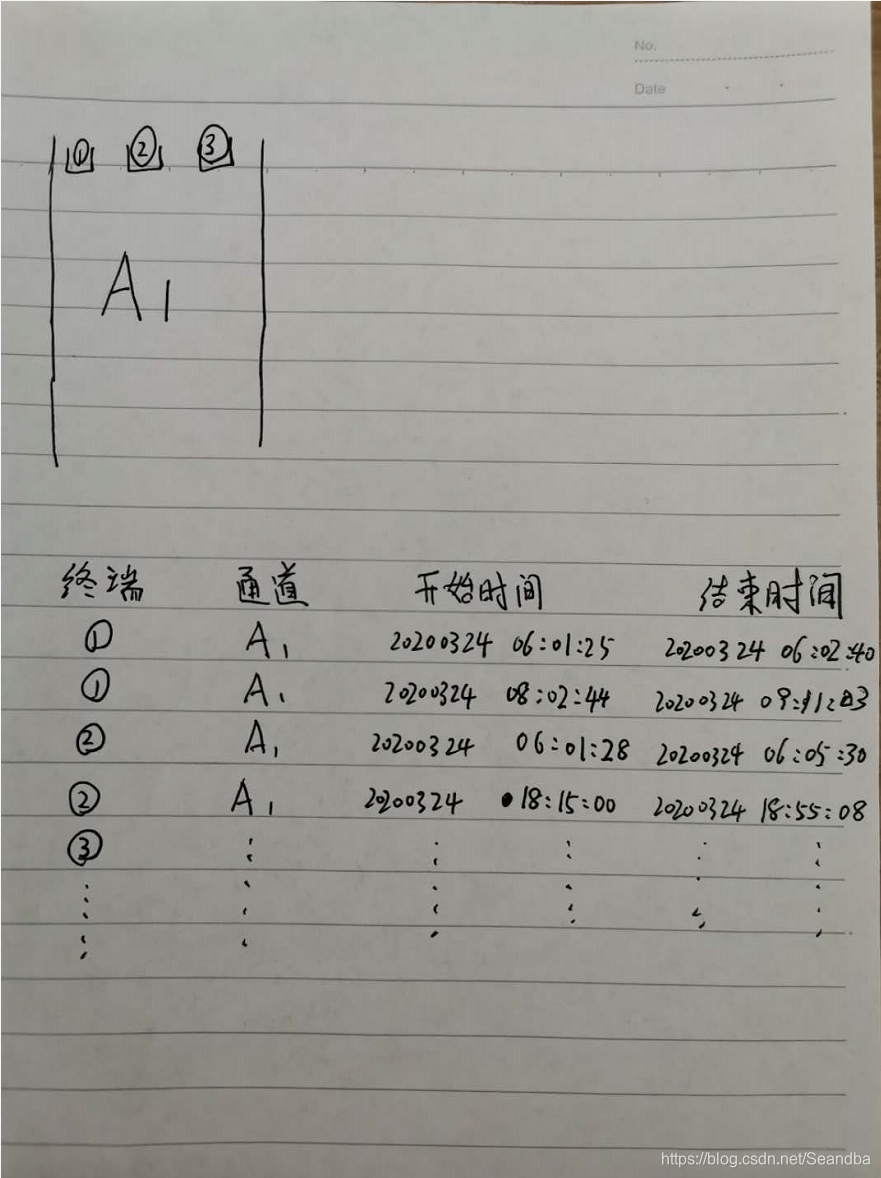 No.
Date
① ② ③
A1
终端 通道 开始时间 结束时间
① A1 20200324 06:01:25 20200324 06:02:40
① A1 20200324 08:02:44 20200324 09:11:03
② A1 20200324 06:01:28 20200324 06:05:30
② A1 20200324 18:15:00 20200324 18:55:08
③
https://blog.csdn.net/Seandba